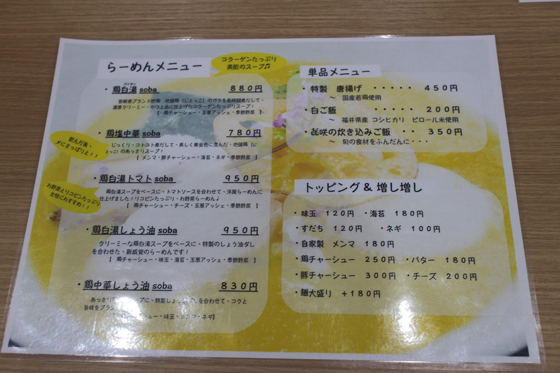 らーめんメニュー
コラーゲンたっぷり
美肌のスープ♬
・鶏白湯 soba 880円
・鶏塩中華 soba 780円
飲んだ後、
メにさっぱりと！！
じっくり・コトコト煮だして・美しく黄金色に澄んだ
のあっさりスープ！
【 メンマ・豚チャーシュー・海苔・ネギ・季節野菜 】
・鶏白湯トマト soba 950円
鶏白湯スープをベースに・トマトソースを合わせて・洋風らーめんに
仕上げました！リコピンたっぷり・お野菜らーめん♪
【 鶏チャーシュー・チーズ・玉葱アッシェ・季節野菜 】
お野菜とリコピンたっぷり
女性におすすめ！！
・鶏白湯しょう油 soba 950円
クリーミーな鶏白湯スープをベースに・特製のしょう油ダレ
を合わせた・新感覚のらーめんです！
【 鶏チャーシュー・味玉・海苔・玉葱アッシェ・季節野菜 】
・鶏中華しょう油 soba 830円
単品メニュー
・特製 唐揚げ ・・・・・ 450円
～ 国産若鶏使用
・白ご飯 ・・・・・ 200円
～ 福井県産 コシヒカリ ピロール米使用
の炊き込みご飯 ・・ 350円
～ 旬の食材をふんだんに・・・
トッピング & 増し増し
・味玉 120円 ・海苔 180円
・すだち 120円 ・ネギ 100円
・自家製 メンマ 180円
・鶏チャーシュー 250円 ・バター 180円
・豚チャーシュー 300円 ・チーズ 200円
・麺大盛り +180円